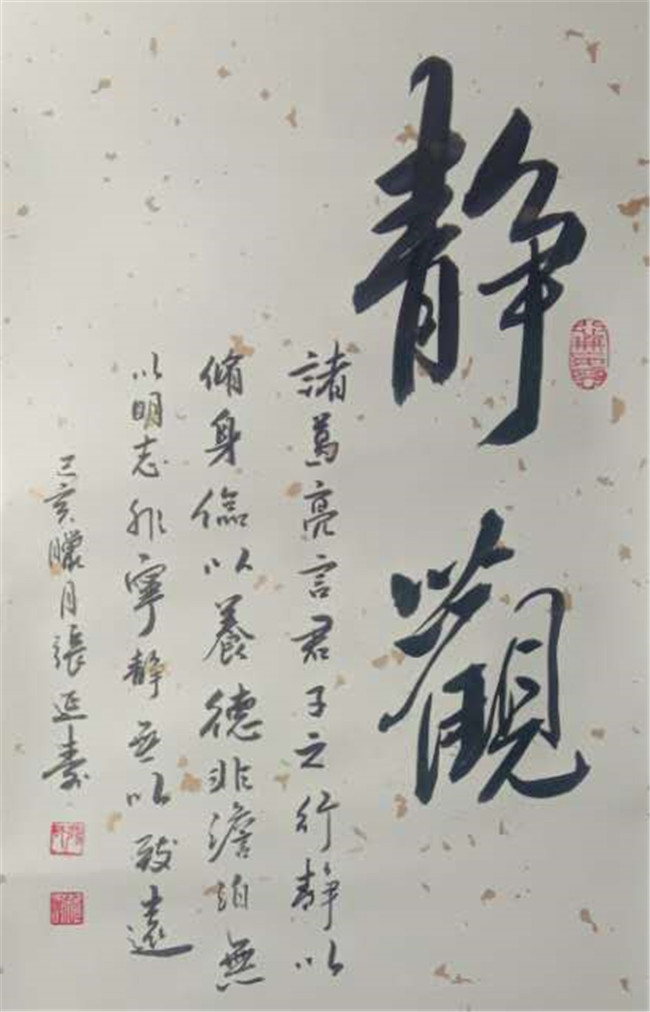 静觀
諸葛亮言君子之行静以
脩身儉以養德非澹泊無
以明志非寧静無以致遠
己亥臘月張延壽